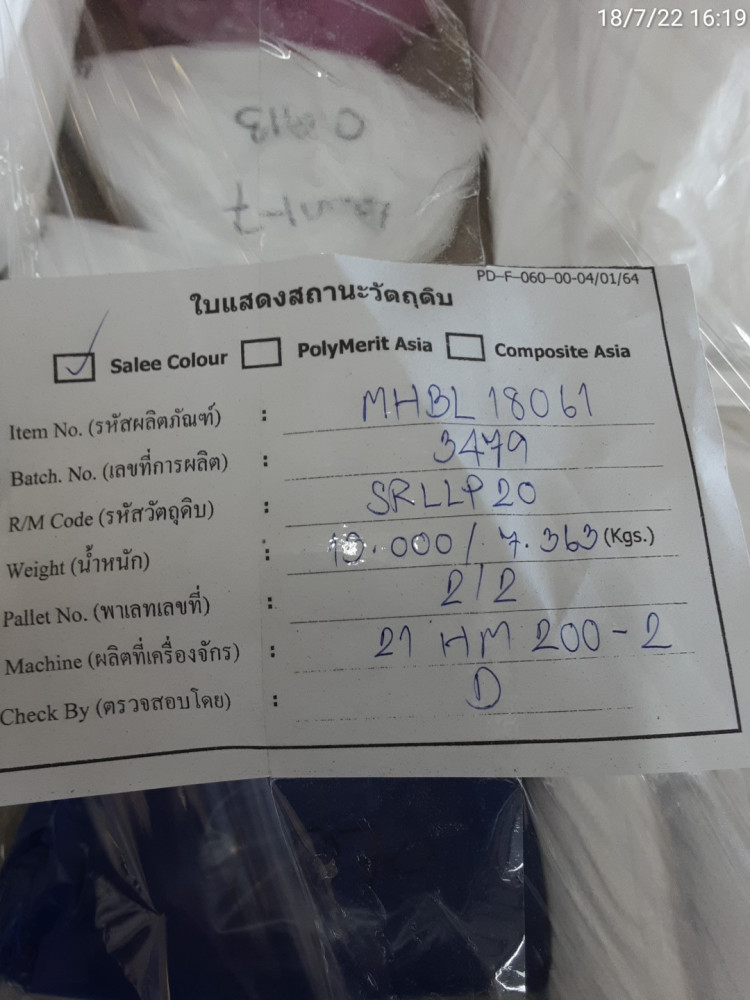 18/7/22 16:19
PD-F-060-00-04/01/64
ใบแสดงสถานะวัตถุดิบ
Salee Colour PolyMerit Asia Composite Asia
Item No. (รหัสผลิตภัณฑ์) : MHBL 18061
Batch. No. (เลขที่การผลิต) : 3479
R/M Code (รหัสวัตถุดิบ) : SRLLP20
Weight (น้ำหนัก) : 10.000 / 7.363 (Kgs.)
Pallet No. (พาเลทเลขที่) : 2/2
Machine (ผลิตที่เครื่องจักร) : 21 HM 200-2
Check By (ตรวจสอบโดย) : D